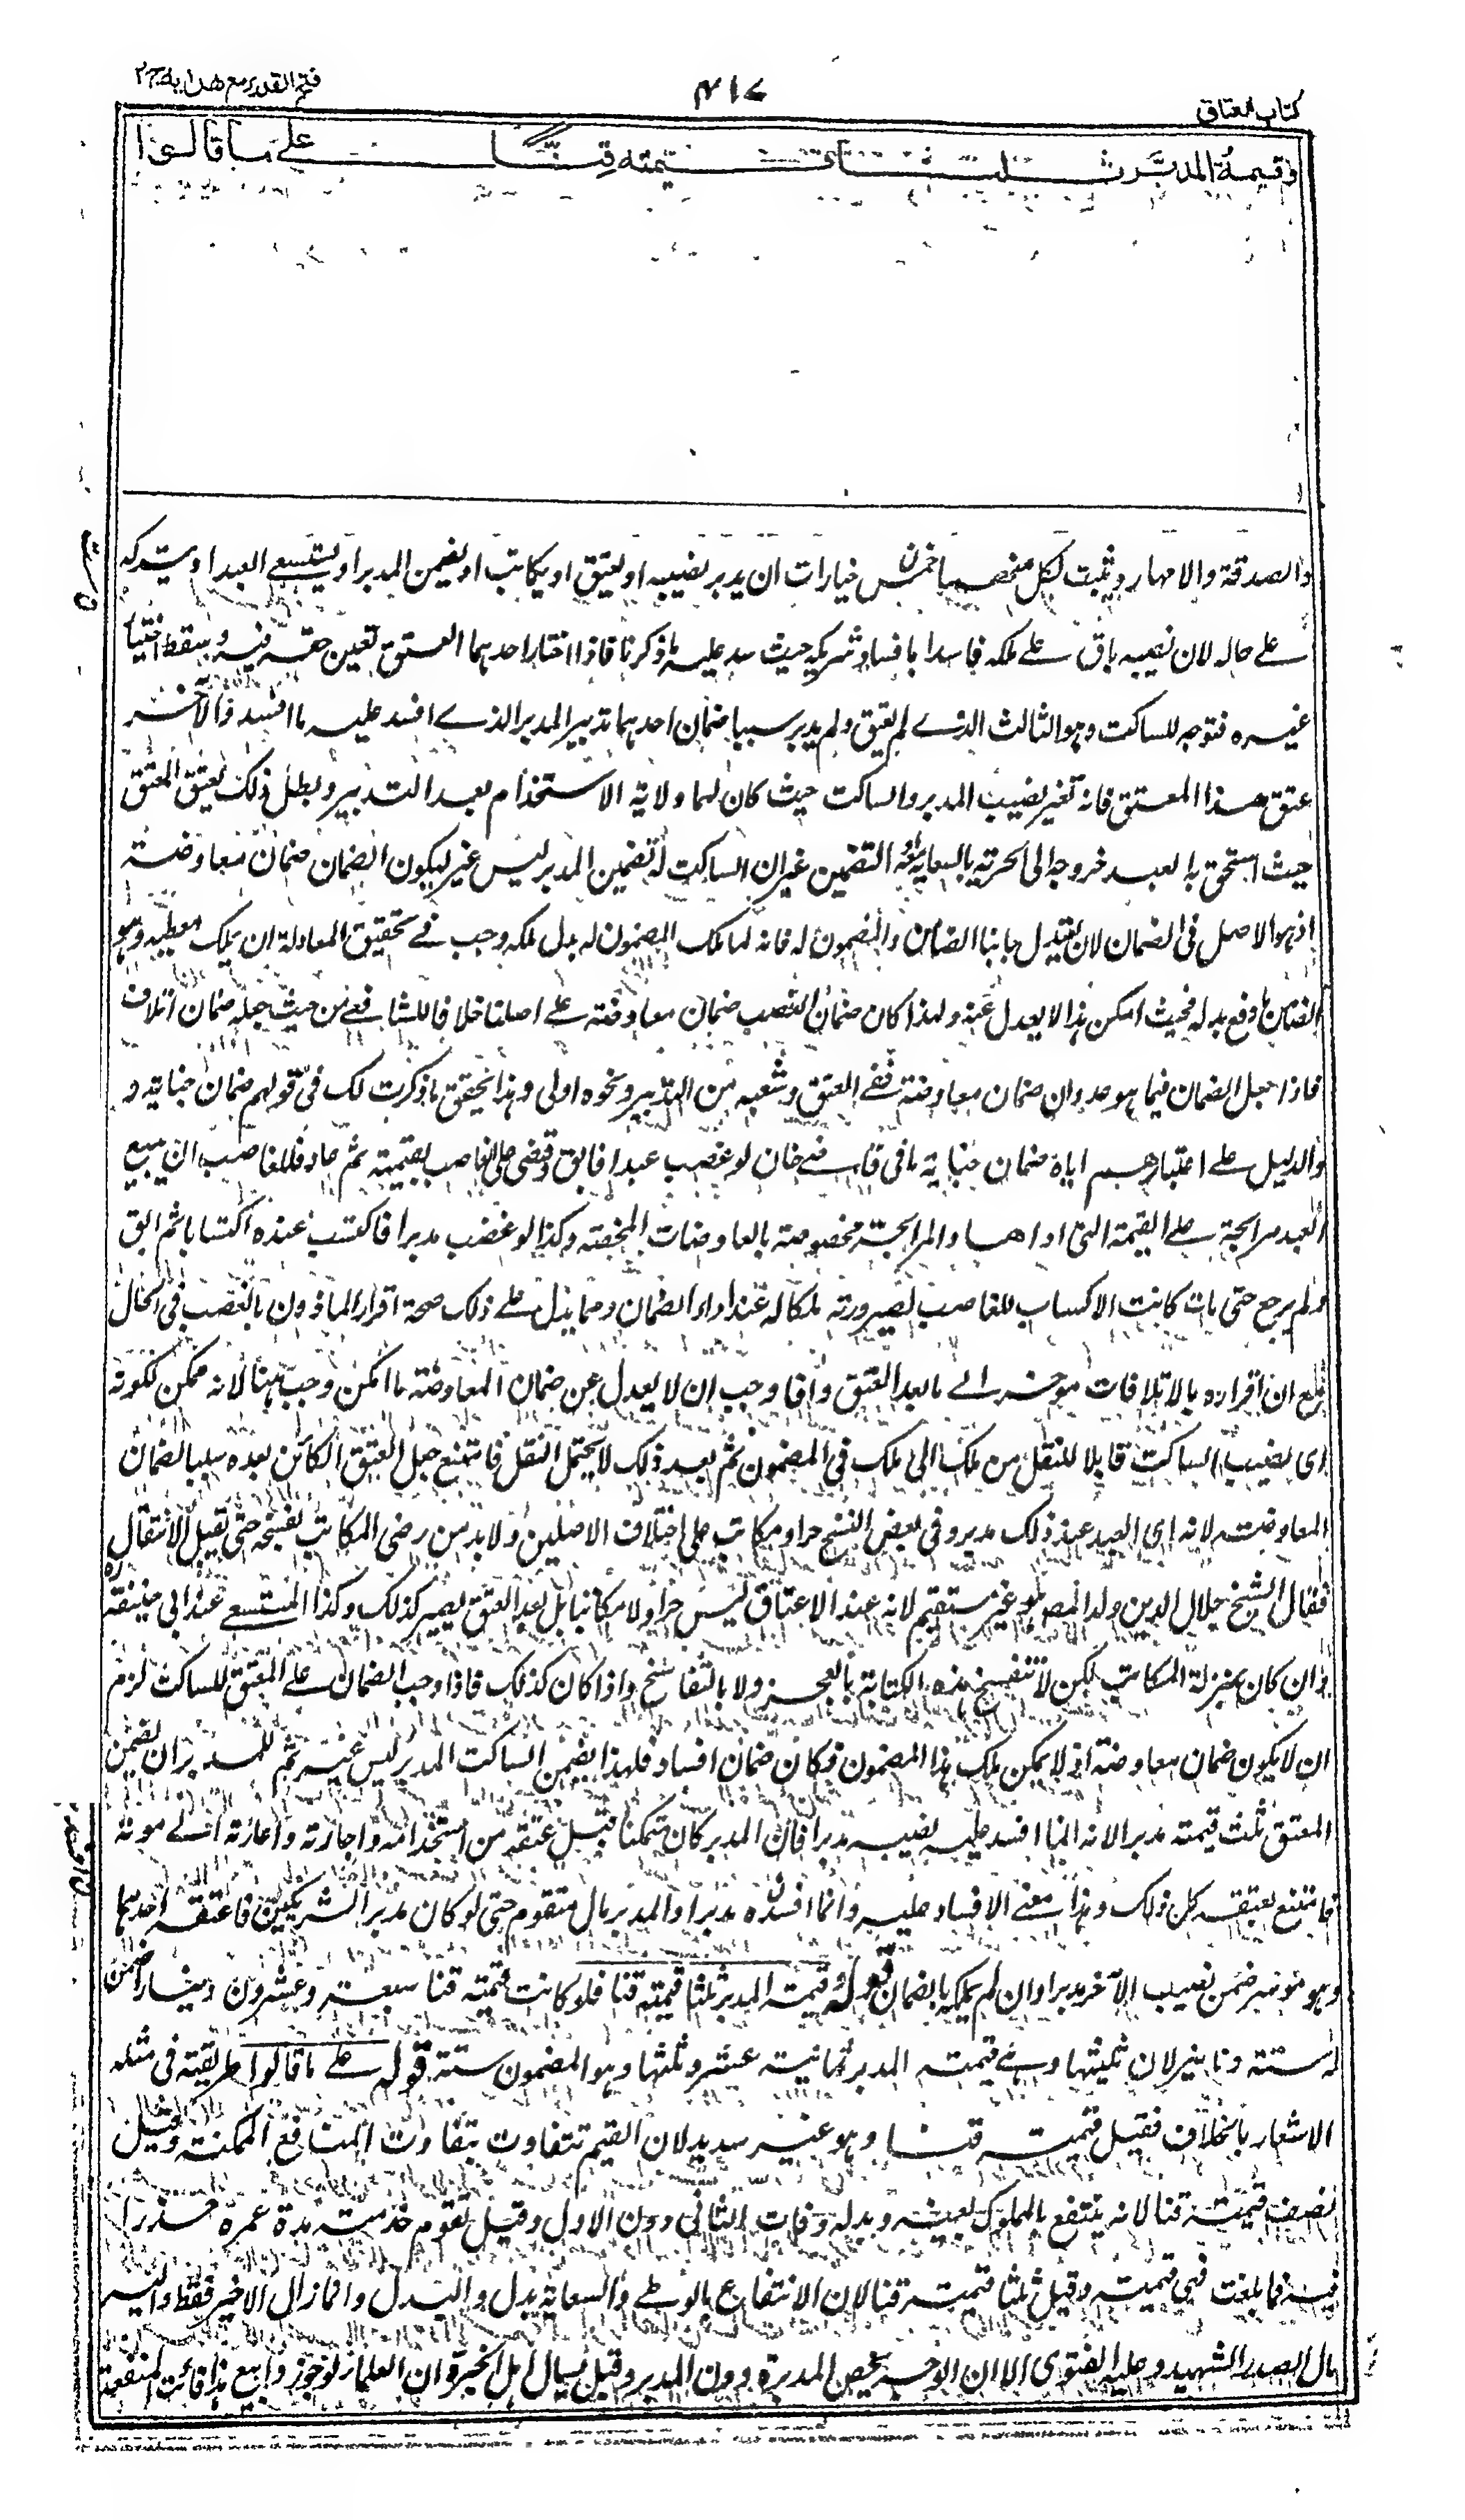 فتح القدير مع هداية ج٢
٤١٧
كتاب العتاق
وقيمة المدبَّر ثلثا قيمته قنًّا على ما قالوا
والصدقة والامهار ويثبت لكل منهما خمس خيارات ان يدبر نصيبه او يعتق او يكاتب او يضمن المدبر او يستسعى العبد او يتركه
على حاله لان نصيبه باق على ملكه فاسدا بافساد شريكه حيث سد عليه ما ذكرنا فاذا اختار احدهما العتق تعين حقه فيه وسقط اختيار
غيره فتوجه للساكت وهو الثالث الذى لم يعتق ولم يدبر سببا ضمان احدهما تدبير المدبر الذى افسد عليه ما افسد والآخر
عتق هذا المعتق فانه تغير نصيب المدبر والساكت حيث كان لهما ولاية الاستخدام بعد التدبير وبطل ذلك بعتق المعتق
حيث استحق به العبد خروجه الى الحرية بالسعاية التضمين غير ان الساكت له تضمين المدبر ليس غير ليكون الضمان ضمان معاوضة
اذ هو الاصل فى الضمان لان يعتدل جانبا الضامن والمضمون له فانه لما ملك المضمون له بدل ملكه وجب فى تحقيق المعادلة ان يملك معطيه وهو
الضامن ما دفع بدله فحيث امكن هذا لا يعدل عنه ولهذا كان ضمان الغصب ضمان معاوضة على اصلنا خلافا للشافعى من حيث جعله ضمان اتلاف
فاذا جعل الضمان فيما هو عدوان ضمان معاوضة ففى العتق وشعبه من التدبير ونحوه اولى وهذا يحقق ما ذكرت لك فى قولهم ضمان جناية و
والدليل على اعتبارهم اياه ضمان جناية ما فى قاضى خان لو غصب عبدا فابق وقضى على الغاصب بقيمته ثم عاد فللغاصب ان يبيع
العبد مرابحة على القيمة التى اداها والمرابحة مخصوصة بالمعاوضات المحضة وكذا لو غصب مدبرا فاكتسب عنده اكتسابا ثم ابق
ولم يرجع حتى مات كانت الاكساب للغاصب لصيرورته ملكا له عند اداء الضمان ومما يدل على ذلك صحة اقرار الماذون بالغصب فى الحال
مع ان اقراره بالاتلافات موخر الى ما بعد العتق واذا وجب ان لا يعدل عن ضمان المعاوضة ما امكن وجب هنا لانه ممكن لكونه
اى نصيب الساكت قابلا للنقل من ملك الى ملك فى المضمون ثم بعد ذلك لا يحتمل النقل فامتنع جعل العتق الكائن بعده سببا لضمان
المعاوضة لانه اى العبد عند ذلك مدبر وفى بعض النسخ حر او مكاتب على اختلاف الاصلين ولا بد من رضى المكاتب بفسخه حتى يقبل الانتقال
فقال الشيخ جلال الدين ولد المصنف هو غير مستقيم لانه عند الاعتاق ليس حرا ولا مكاتبا بل بعد العتق يصير كذلك وكذا المستسعى عند ابى حنيفة
وان كان بمنزلة المكاتب لكن لا تنفسخ هذه الكتابة بالعجز ولا بالتفاسخ واذا كان كذلك فاذا وجب الضمان على المعتق للساكت لزم
ان لا يكون ضمان معاوضة اذ لا يمكن ملك هذا المضمون فكان ضمان افساد فلهذا يضمن الساكت المدبر ليس غير ثم للمدبر ان يضمن
المعتق ثلث قيمته مدبرا لانه انما افسد عليه نصيبه مدبرا فان المدبر كان متمكنا قبل عتقه من استخدامه واجارته واعارته الى موته
فامتنع بعتقه كل ذلك وهذا معنى الافساد عليه وانما افسده مدبرا والمدبر مال متقوم حتى لو كان مدبر الشريكين فاعتقه احدهما
وهو موسر ضمن نصيب الآخر مدبرا وان لم يملكه بالضمان قوله قيمة المدبر ثلثا قيمته قنا فلو كانت قيمته قنا سبعة وعشرون دينارا ضمن
له ستة دنانير لان ثلثيها وهى قيمته المدبر ثمانية عشر وثلثها وهو المضمون ستة قوله على ما قالوا طريقته فى مثله
الاشعار بالخلاف فقيل قيمته قنا وهو غير سديد لان القيم تتفاوت بتفاوت المنافع الممكنة وقيل
نصف قيمته قنا لانه ينتفع بالمملوك بعينه وبدله وفات الثانى دون الاول وقيل تقوم خدمته مدة عمره حزرا
فيه فما بلغت فهى قيمته وقيل ثلثا قيمته قنا لان الانتفاع بالوطى والسعاية بدل والبدل وانما زال الاخير فقط واليه
مال الصدر الشهيد وعليه الفتوى الا ان الوجه يخص المدبرة دون المدبر وقيل يسال اهل الخبرة ان العلماء لو جوزوا بيع هذا فائت المنفعة